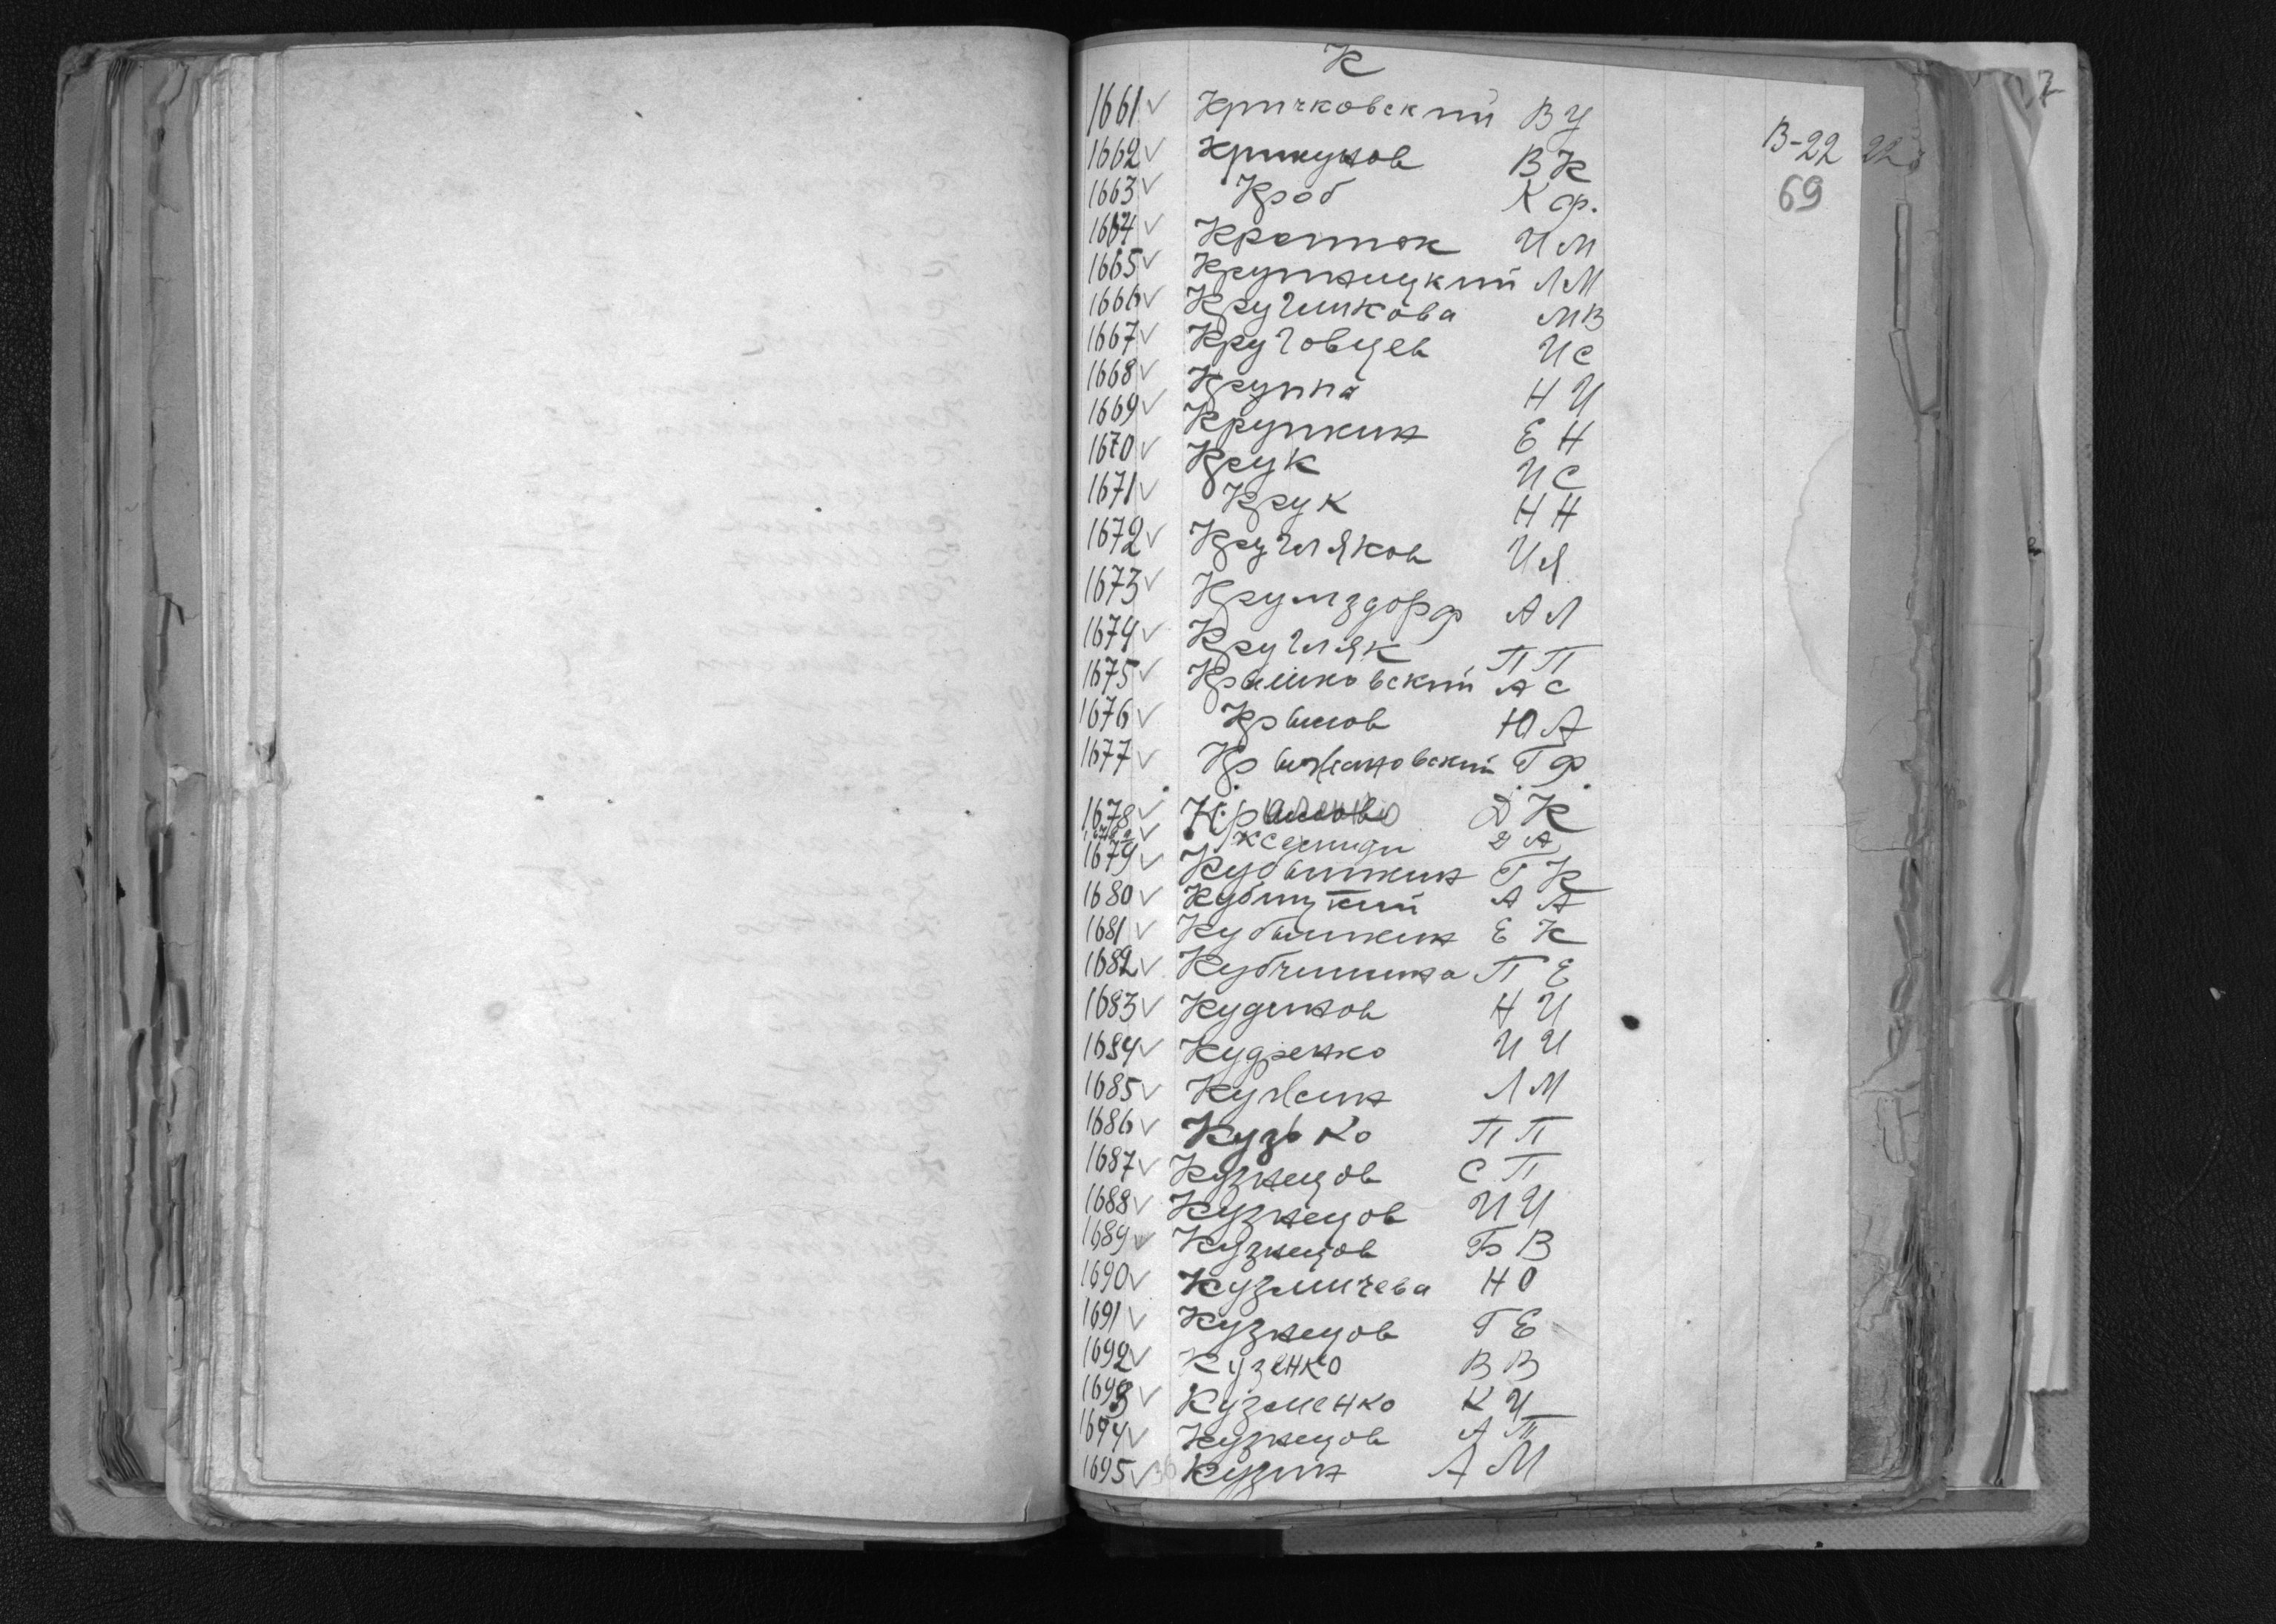 К
7
1661 ✓ Кричковский В У
В-22
1662 ✓ Крикунов В К
69
1663 ✓ Кроб К Ф.
1664 ✓ И М
1665 ✓ Крутницкий Л М
1666 ✓ Кругликова М В
1667 ✓ Круговцев И С
1668 ✓ Круппа Н И
1669 ✓ Крупкин Е Н
1670 ✓ Крук И С
1671 ✓ Крук Н Н
1672 ✓ Кругляков И Я
1673 ✓ Крумздорф А Л
1674 ✓ Кругляк П П
1675 ✓ Крышковский А С
1676 ✓ Крылов Ю А
1677 ✓ Крыжановский Г Ф
1678 ✓ Д К
1678а ✓ А
1679 ✓ Кубышкин Г К
1680 ✓ Кубицкий А А
1681 ✓ Кубышкин Е К
1682 ✓ Кубчишина П Е
1683 ✓ Кудинов Н И
1684 ✓ Кудренко И И
1685 ✓ Кужелин Л М
1686 ✓ Кузько П П
1687 ✓ Кузнецов С П
1688 ✓ Кузнецов И И
1689 ✓ Кузнецов Б В
1690 ✓ Кузмичева Н О
1691 ✓ Кузнецов Г Е
1692 ✓ Кузенко В В
1693 ✓ Кузменко К И
1694 ✓ Кузнецов А П
1695 ✓ Кузин А М